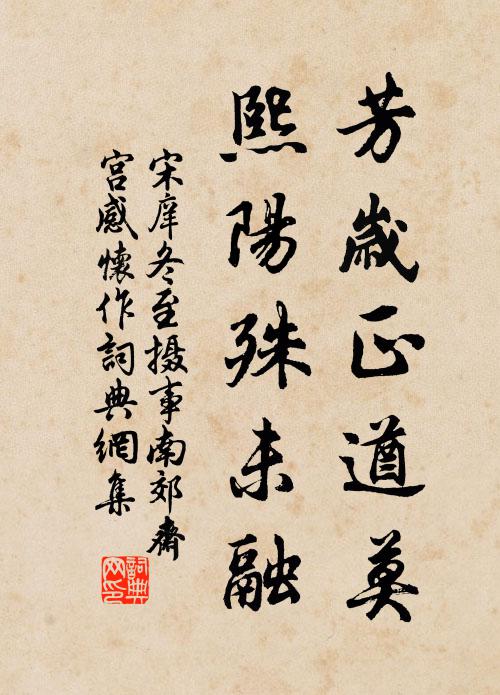 芳歲正遒莫
熙陽殊未融
宋庠冬至摄事南郊齋
宫感懷作詞典網集
詞典
网印